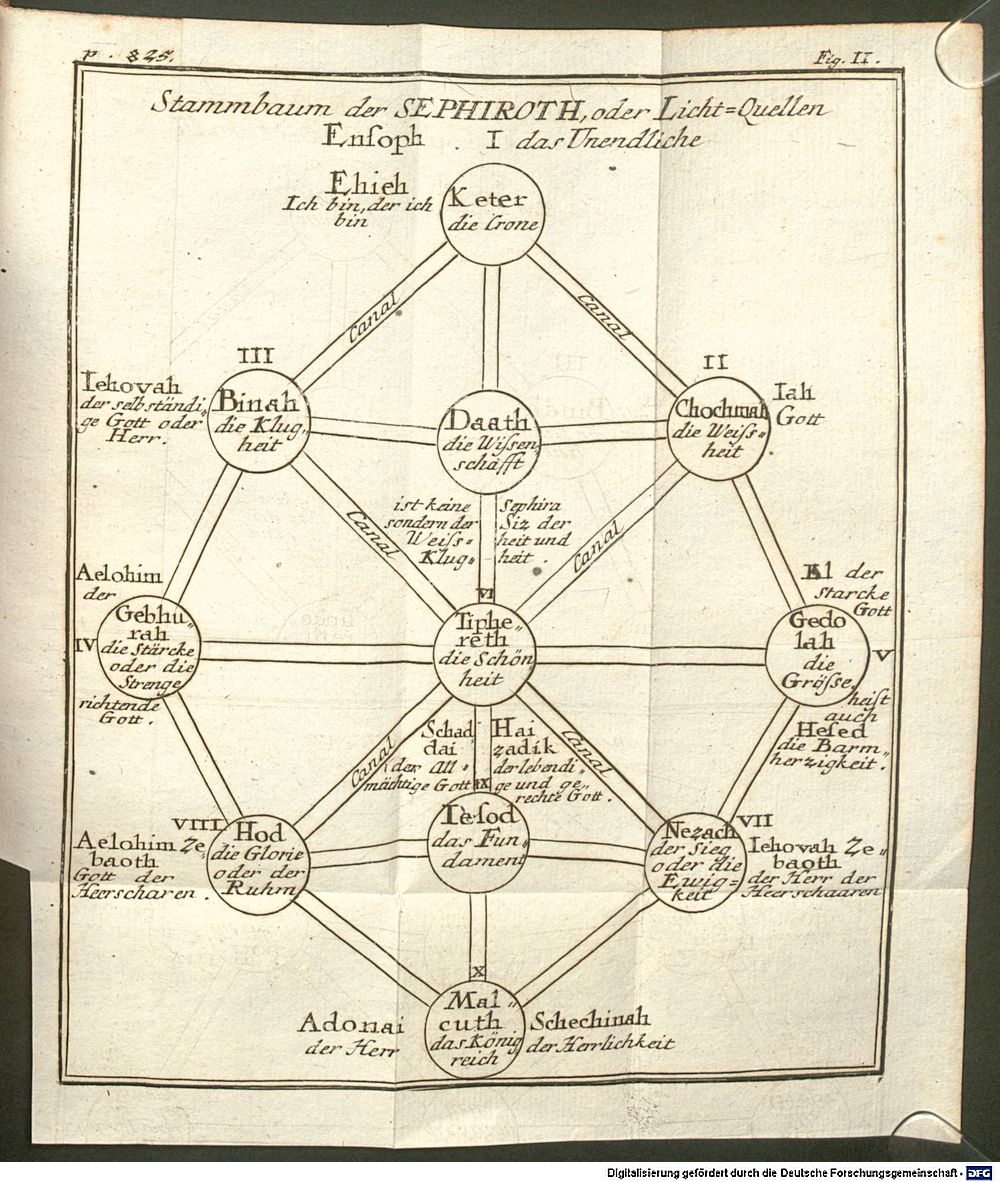 p. 825.
Fig. II.
Stammbaum der SEPHIROTH, oder Licht=Quellen
Enſoph . I das Unendliche
Ehieh
Ich bin, der ich
bin
Keter
die Crone
Canal
Canal
III
II
Iehovah
der selbständi=
ge Gott oder
Herr.
Binah
die Klug=
heit
Daath
die Wiſſen=
schafft
Chochmah
die Weiſs=
heit
Iah
Gott
ist keine Sephira
sondern der Siz der
Weiſs= heit und
Klug= heit.
Canal
Canal
Aelohim
der
IV
Gebhu=
rah
die Stärcke
oder die
Strenge
richtende
Gott.
VI
Tiphe=
reth
die Schön
heit
El der
starcke
Gott
Gedo
lah
die
Gröſse
V
heist
auch
Heſed
die Barm=
herzigkeit.
Schad
dai
der All=
mächtige Gott
Hai
zadik
der lebendi=
ge und ge=
rechte Gott.
Canal
Canal
IX
Ieſod
das Fun=
dament
VIII
Aelohim Ze=
baoth
Gott der
Heerscharen.
Hod
die Glorie
oder der
Ruhm
VII
Nezach
der Sieg
oder die
Ewig=
keit
Iehovah Ze=
baoth
der Herr der
Heerschaaren
X
Mal=
cuth
das König
reich
Adonai
der Herr
Schechinah
der Herrlichkeit
Digitalisierung gefördert durch die Deutsche Forschungsgemeinschaft - DFG